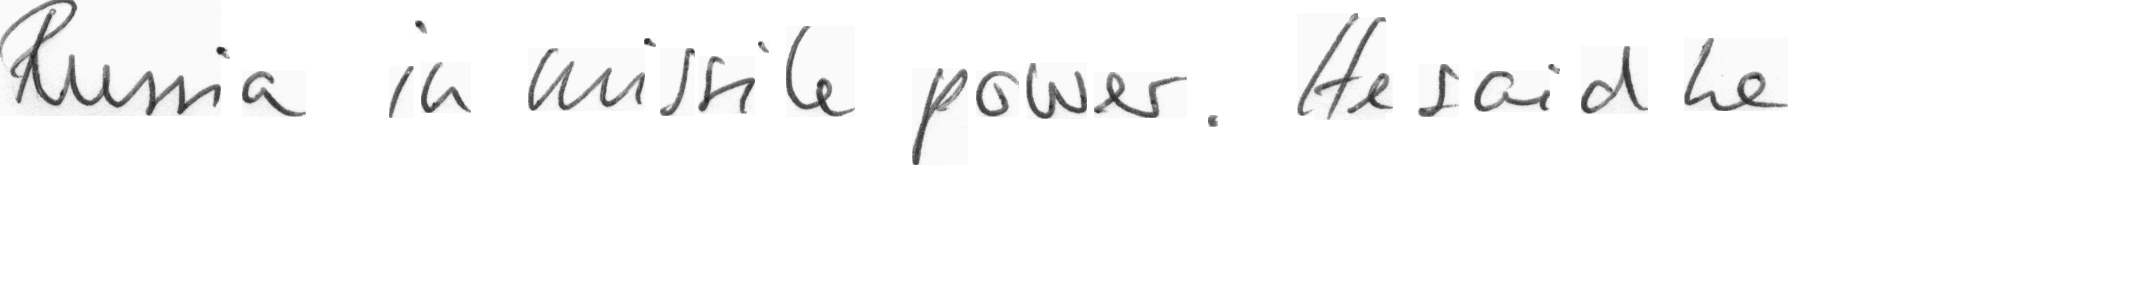 Russia in missile power. He said he